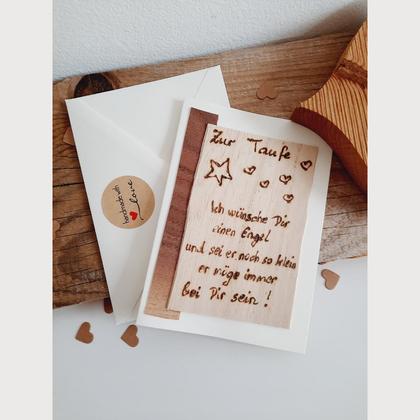 Zur Taufe
Ich wünsche Dir
einen Engel
und sei er noch so klein
er möge immer
bei Dir sein!
handmade with
love